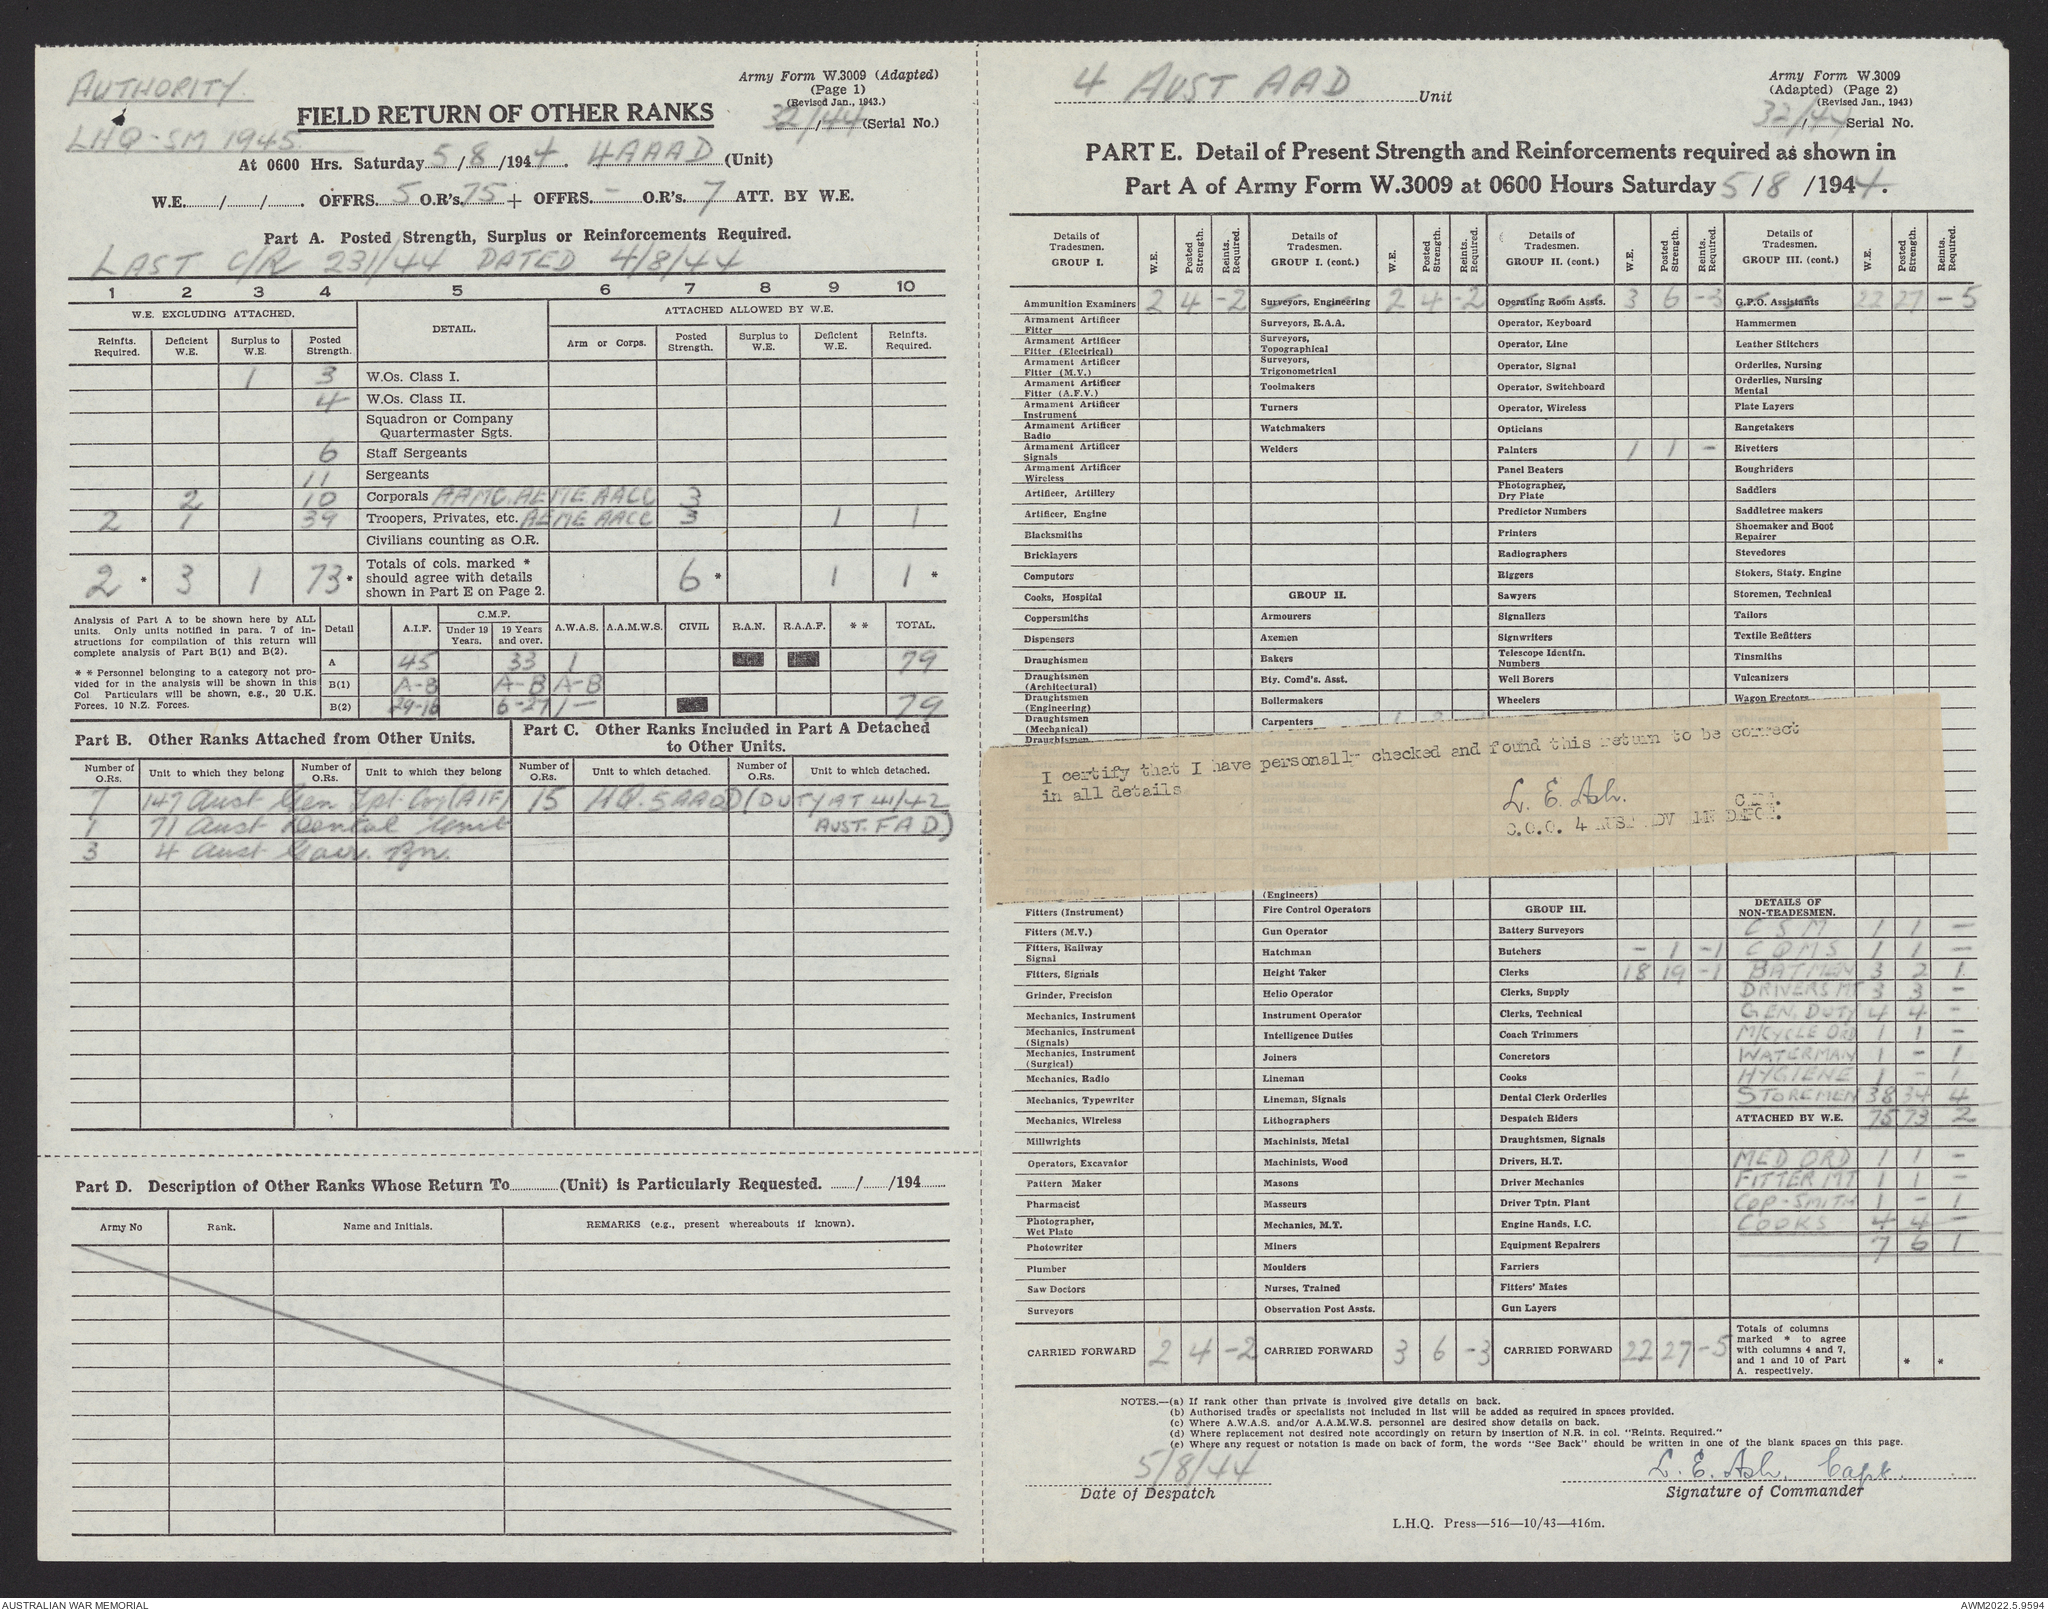 AUTHORITY.
LHQ-SM 1945.
Army Form W.3009 (Adapted)
(Page 1)
(Revised Jan., 1943.)
32/44 (Serial No.)
FIELD RETURN OF OTHER RANKS
At 0600 Hrs. Saturday 5/8/1944. 4AAAD (Unit)
W.E. / / . OFFRS. 5 O.R's. 75 + OFFRS. - O.R's. 7 ATT. BY W.E.
Part A. Posted Strength, Surplus or Reinforcements Required.
LAST C/R 231/44 DATED 4/8/44
1 2 3 4 5 6 7 8 9 10
W.E. EXCLUDING ATTACHED. DETAIL. ATTACHED ALLOWED BY W.E.
Reinfts. Required. Deficient W.E. Surplus to W.E. Posted Strength. Arm or Corps. Posted Strength. Surplus to W.E. Deficient W.E. Reinfts. Required.
1 3 W.Os. Class I.
4 W.Os. Class II.
Squadron or Company
Quartermaster Sgts.
6 Staff Sergeants
11 Sergeants
2 10 Corporals AAMC. AEME AACC 3
2 1 39 Troopers, Privates, etc. AEME AACC 3 1 1
Civilians counting as O.R.
2 * 3 1 73 * Totals of cols. marked * should agree with details shown in Part E on Page 2. 6 * 1 1 *
Analysis of Part A to be shown here by ALL units. Only units notified in para. 7 of instructions for compilation of this return will complete analysis of Part B(1) and B(2).
* * Personnel belonging to a category not provided for in the analysis will be shown in this Col. Particulars will be shown, e.g., 20 U.K. Forces, 10 N.Z. Forces.
Detail A.I.F. C.M.F. Under 19 Years. 19 Years and over. A.W.A.S. A.A.M.W.S. CIVIL R.A.N. R.A.A.F. * * TOTAL.
A 45 33 1 79
B(1) A-B A-B A-B
B(2) 29-16 6-27 1- 79
Part B. Other Ranks Attached from Other Units.
Part C. Other Ranks Included in Part A Detached to Other Units.
Number of O.Rs. Unit to which they belong Number of O.Rs. Unit to which they belong Number of O.Rs. Unit to which detached. Number of O.Rs. Unit to which detached.
7 147 Aust Gen Tpt Coy (AIF) 15 HQ. 5 AAOD (DUTY AT 41/42
1 71 Aust Dental Unit AUST. F A D)
3 4 Aust Garr. Bn.
Part D. Description of Other Ranks Whose Return To (Unit) is Particularly Requested. / /194
Army No Rank. Name and Initials. REMARKS (e.g., present whereabouts if known).
4 AUST AAD Unit
Army Form W.3009
(Adapted) (Page 2)
(Revised Jan., 1943)
32/44 Serial No.
PART E. Detail of Present Strength and Reinforcements required as shown in
Part A of Army Form W.3009 at 0600 Hours Saturday 5/8/1944.
Details of Tradesmen. GROUP I. W.E. Posted Strength. Reints. Required.
Ammunition Examiners 2 4 -2
Armament Artificer Fitter
Armament Artificer Fitter (Electrical)
Armament Artificer Fitter (M.V.)
Armament Artificer Fitter (A.F.V.)
Armament Artificer Instrument
Armament Artificer Radio
Armament Artificer Signals
Armament Artificer Wireless
Artificer, Artillery
Artificer, Engine
Blacksmiths
Bricklayers
Computors
Cooks, Hospital
Coppersmiths
Dispensers
Draughtsmen
Draughtsmen (Architectural)
Draughtsmen (Engineering)
Draughtsmen (Mechanical)
Draughtsmen
Fitters (Instrument)
Fitters (M.V.)
Fitters, Railway Signal
Fitters, Signals
Grinder, Precision
Mechanics, Instrument
Mechanics, Instrument (Signals)
Mechanics, Instrument (Surgical)
Mechanics, Radio
Mechanics, Typewriter
Mechanics, Wireless
Millwrights
Operators, Excavator
Pattern Maker
Pharmacist
Photographer, Wet Plate
Photowriter
Plumber
Saw Doctors
Surveyors
CARRIED FORWARD 2 4 -2
Details of Tradesmen. GROUP I. (cont.) W.E. Posted Strength. Reints. Required.
Surveyors, Engineering 2 4 -2
Surveyors, R.A.A.
Surveyors, Topographical
Surveyors, Trigonometrical
Toolmakers
Turners
Watchmakers
Welders
GROUP II.
Armourers
Axemen
Bakers
Bty. Comd's. Asst.
Boilermakers
Carpenters
(Engineers)
Fire Control Operators
Gun Operator
Hatchman
Height Taker
Helio Operator
Instrument Operator
Intelligence Duties
Joiners
Lineman
Lineman, Signals
Lithographers
Machinists, Metal
Machinists, Wood
Masons
Masseurs
Mechanics, M.T.
Miners
Moulders
Nurses, Trained
Observation Post Assts.
CARRIED FORWARD 3 6 -3
Details of Tradesmen. GROUP II. (cont.) W.E. Posted Strength. Reints. Required.
Operating Room Assts. 3 6 -3
Operator, Keyboard
Operator, Line
Operator, Signal
Operator, Switchboard
Operator, Wireless
Opticians
Painters 1 1 -
Panel Beaters
Photographer, Dry Plate
Predictor Numbers
Printers
Radiographers
Riggers
Sawyers
Signallers
Signwriters
Telescope Identfn. Numbers
Well Borers
Wheelers
GROUP III.
Battery Surveyors
Butchers - 1 -1
Clerks 18 19 -1
Clerks, Supply
Clerks, Technical
Coach Trimmers
Concretors
Cooks
Dental Clerk Orderlies
Despatch Riders
Draughtsmen, Signals
Drivers, H.T.
Driver Mechanics
Driver Tptn. Plant
Engine Hands, I.C.
Equipment Repairers
Farriers
Fitters' Mates
Gun Layers
CARRIED FORWARD 22 27 -5
Details of Tradesmen. GROUP III. (cont.) W.E. Posted Strength. Reints. Required.
G.P.O. Assistants 22 27 -5
Hammermen
Leather Stitchers
Orderlies, Nursing
Orderlies, Nursing Mental
Plate Layers
Rangetakers
Rivetters
Roughriders
Saddlers
Saddletree makers
Shoemaker and Boot Repairer
Stevedores
Stokers, Staty. Engine
Storemen, Technical
Tailors
Textile Refitters
Tinsmiths
Vulcanizers
Wagon Erectors
DETAILS OF NON-TRADESMEN.
C S M 1 1 -
C Q M S 1 1 -
BATMAN 3 2 1
DRIVERS MT 3 3 -
GEN. DUTY 4 4 -
M/CYCLE ORD 1 1 -
WATERMAN 1 - 1
HYGIENE 1 - 1
STOREMEN 38 34 4
ATTACHED BY W.E. 75 73 2
MED ORD 1 1 -
FITTER MT 1 1 -
COP-SMITH 1 - 1
COOKS 4 4 -
7 6 1
Totals of columns marked * to agree with columns 4 and 7, and 1 and 10 of Part A. respectively. * *
I certify that I have personally checked and found this return to be correct
in all details
L. E. Ash.
C.O.O. 4 AUST ADV AMN DEPOT.
NOTES.—(a) If rank other than private is involved give details on back.
(b) Authorised trades or specialists not included in list will be added as required in spaces provided.
(c) Where A.W.A.S. and/or A.A.M.W.S. personnel are desired show details on back.
(d) Where replacement not desired note accordingly on return by insertion of N.R. in col. "Reints. Required."
(e) Where any request or notation is made on back of form, the words "See Back" should be written in one of the blank spaces on this page.
5/8/44
Date of Despatch
L. E. Ash. Capt.
Signature of Commander
L.H.Q. Press—516—10/43—416m.
AUSTRALIAN WAR MEMORIAL
AWM2022.5.9594